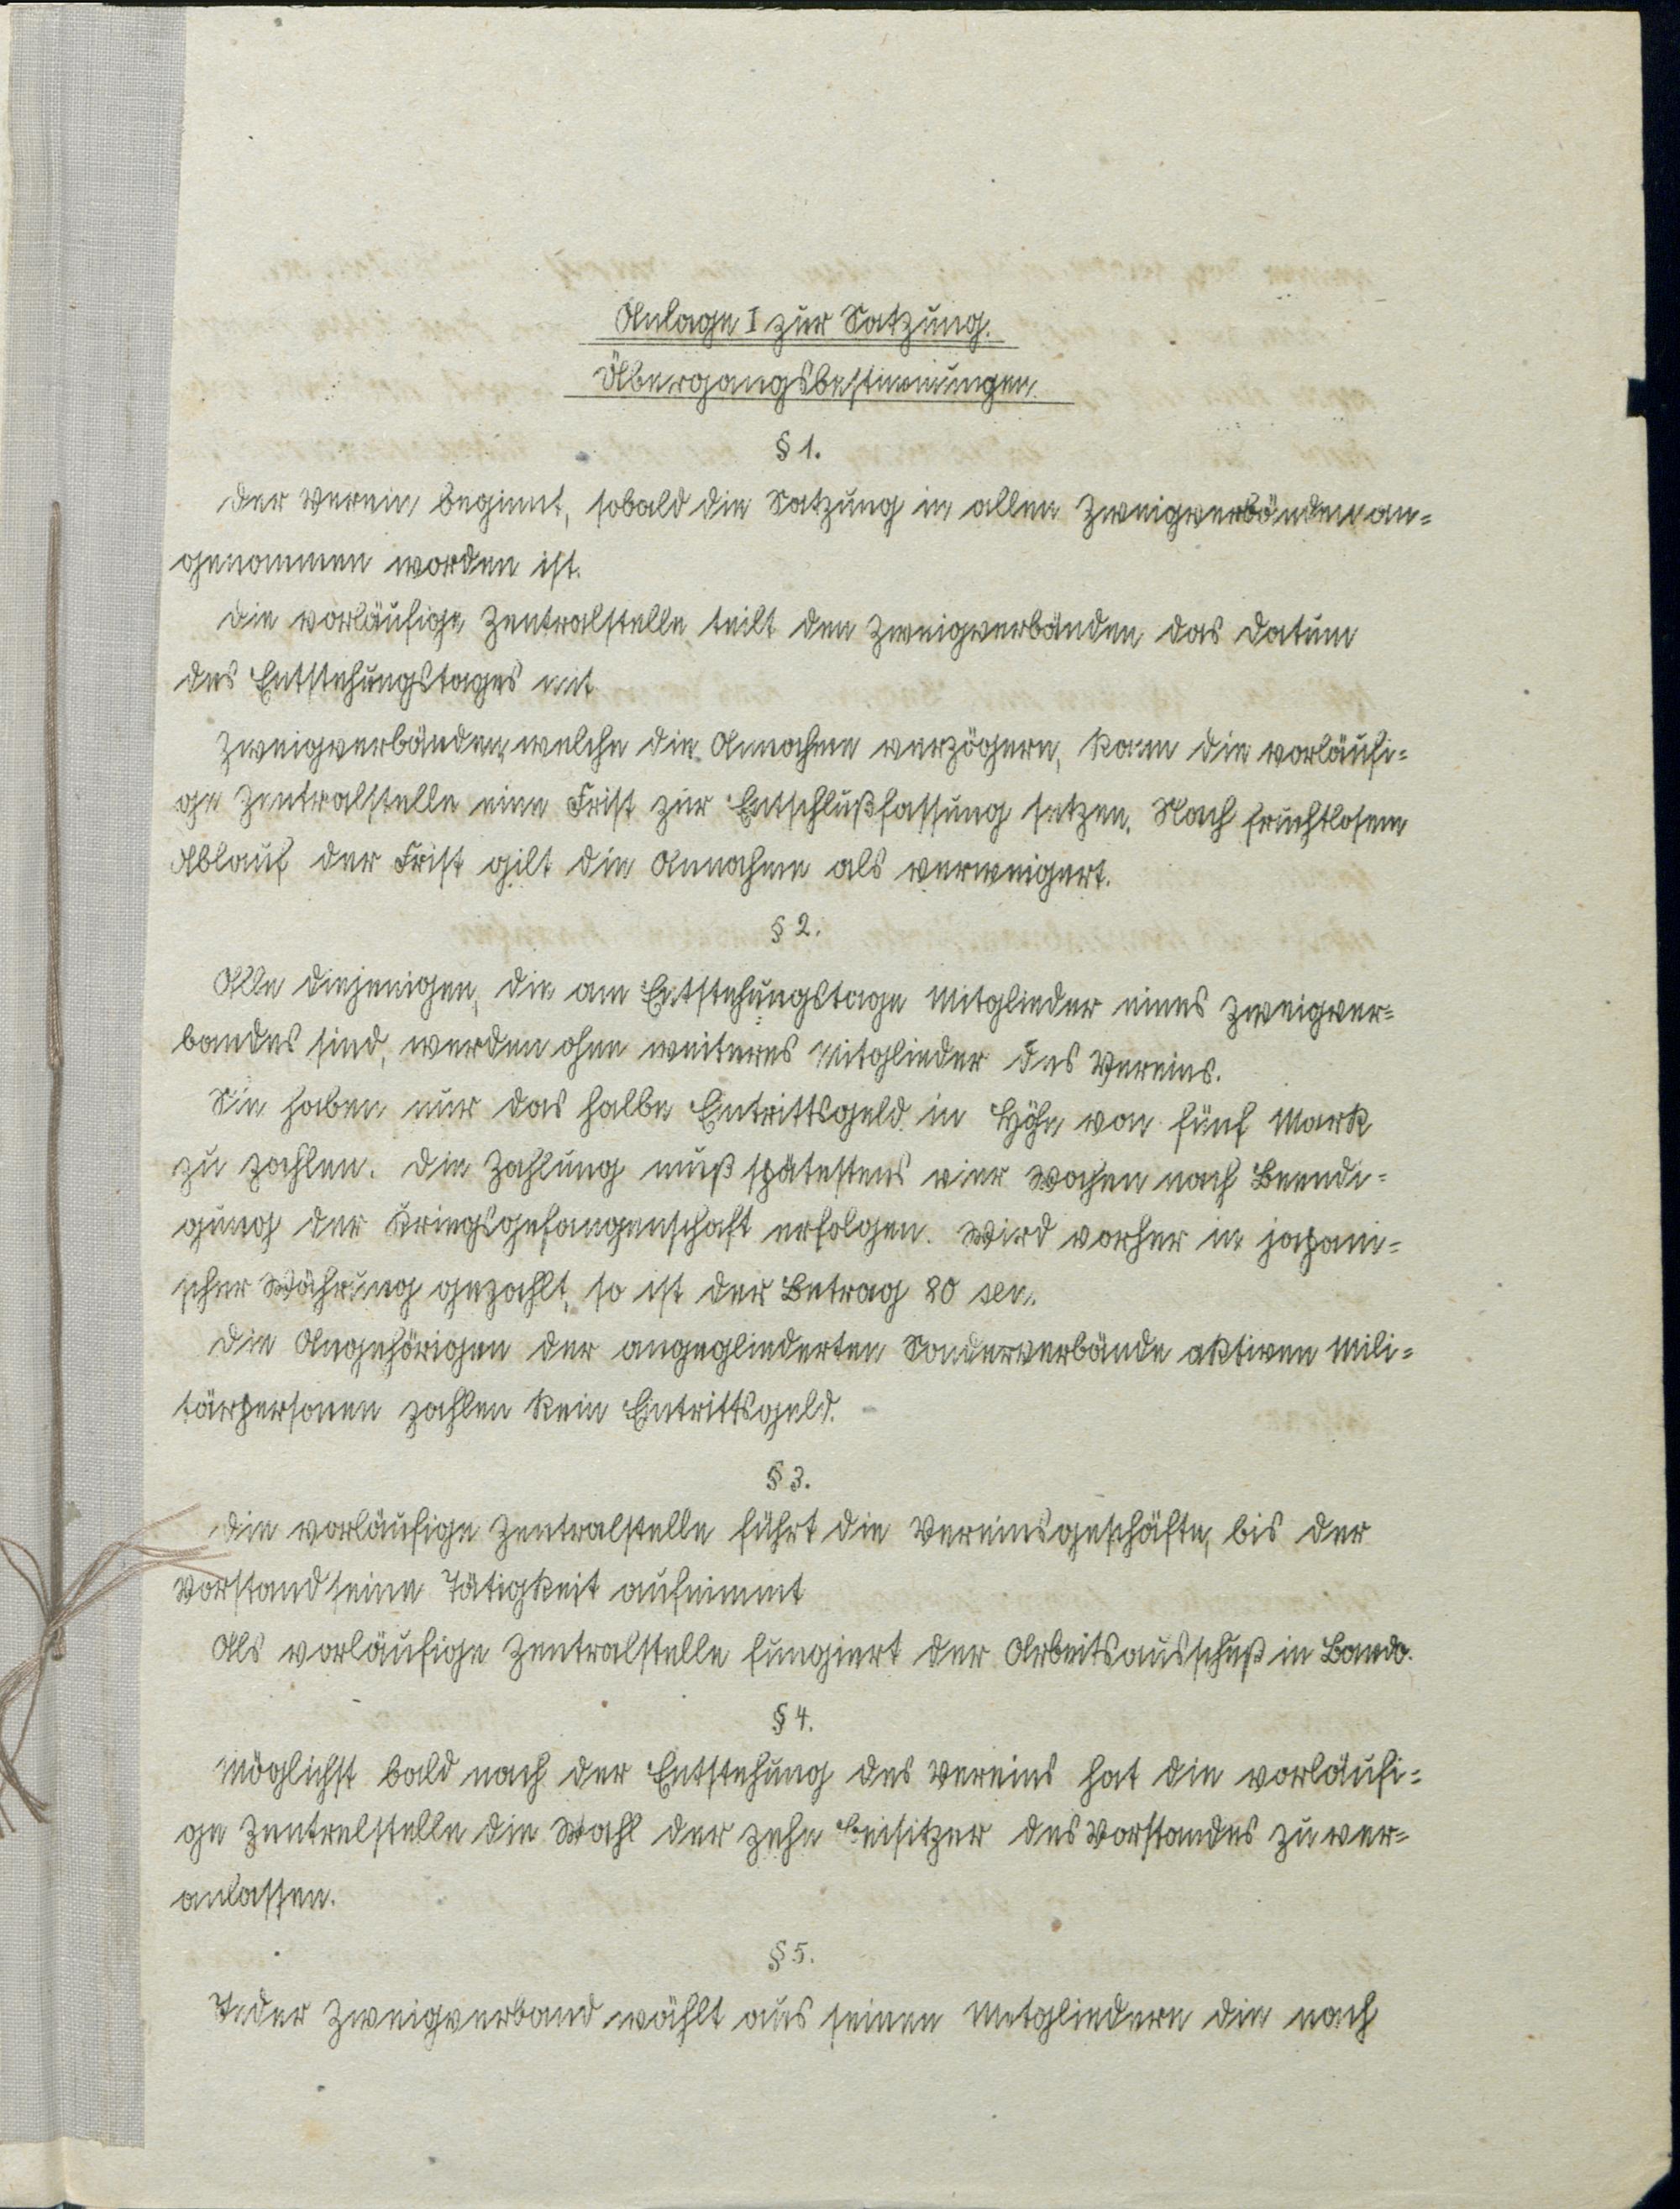 Anlage I zur Satzung.
Übergangsbestimmungen.
§ 1.
Der Verein beginnt, sobald die Satzung in allen Zweigverbänden an=
genommen worden ist.
Die vorläufige Zentralstelle teilt den Zweigverbänden das Datum
des Entstehungstages mit
Zweigverbänden, welche die Annahme verzögern, kann die vorläufi=
ge Zentralstelle eine Frist zur Entschlußfassung setzen. Nach fruchtlosem
Ablauf der Frist gilt die Annahme als verweigert.
§ 2.
Alle diejenigen, die am Entstehungstage Mitglieder eines Zweigver=
bandes sind, werden ohne weiteres Mitglieder des Vereins.
Sie haben nur das halbe Eintrittsgeld in Höhe von fünf Mark
zu zahlen. Die Zahlung muß spätestens vier Wochen nach Beendi=
gung der Kriegsgefangenschaft erfolgen. Wird vorher in japani=
scher Währung gezahlt, so ist der Betrag 80 sen.
Die Angehörigen der angegliederten Sonderverbände aktiven Mili=
tärpersonen zahlen kein Eintrittsgeld.
§ 3.
Die vorläufige Zentralstelle führt die Vereinsgeschäfte, bis der
Vorstand seine Tätigkeit aufnimmt
Als vorläufige Zentralstelle fungiert der Arbeitsausschuß in Bando.
§ 4.
Möglichst bald nach der Entstehung des Vereins hat die vorläufi=
ge Zentralstelle die Wahl der zehn Beisitzer des Vorstandes zu ver=
anlassen.
§ 5.
Jeder Zweigverband wählt aus seinen Mitgliedern die nach